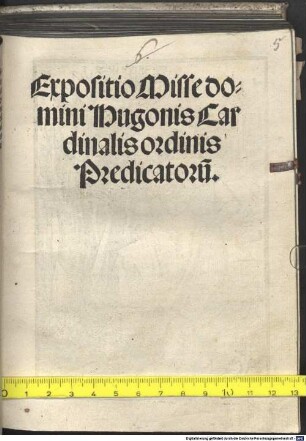 6.
5
Expositio Misse do-
mini Hugonis Car
dinalis ordinis
Predicatorū.
1 2 3 4 5 6 7 8 9 10 11 12 13